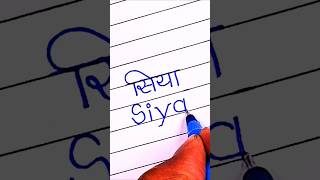 सिया
Siya